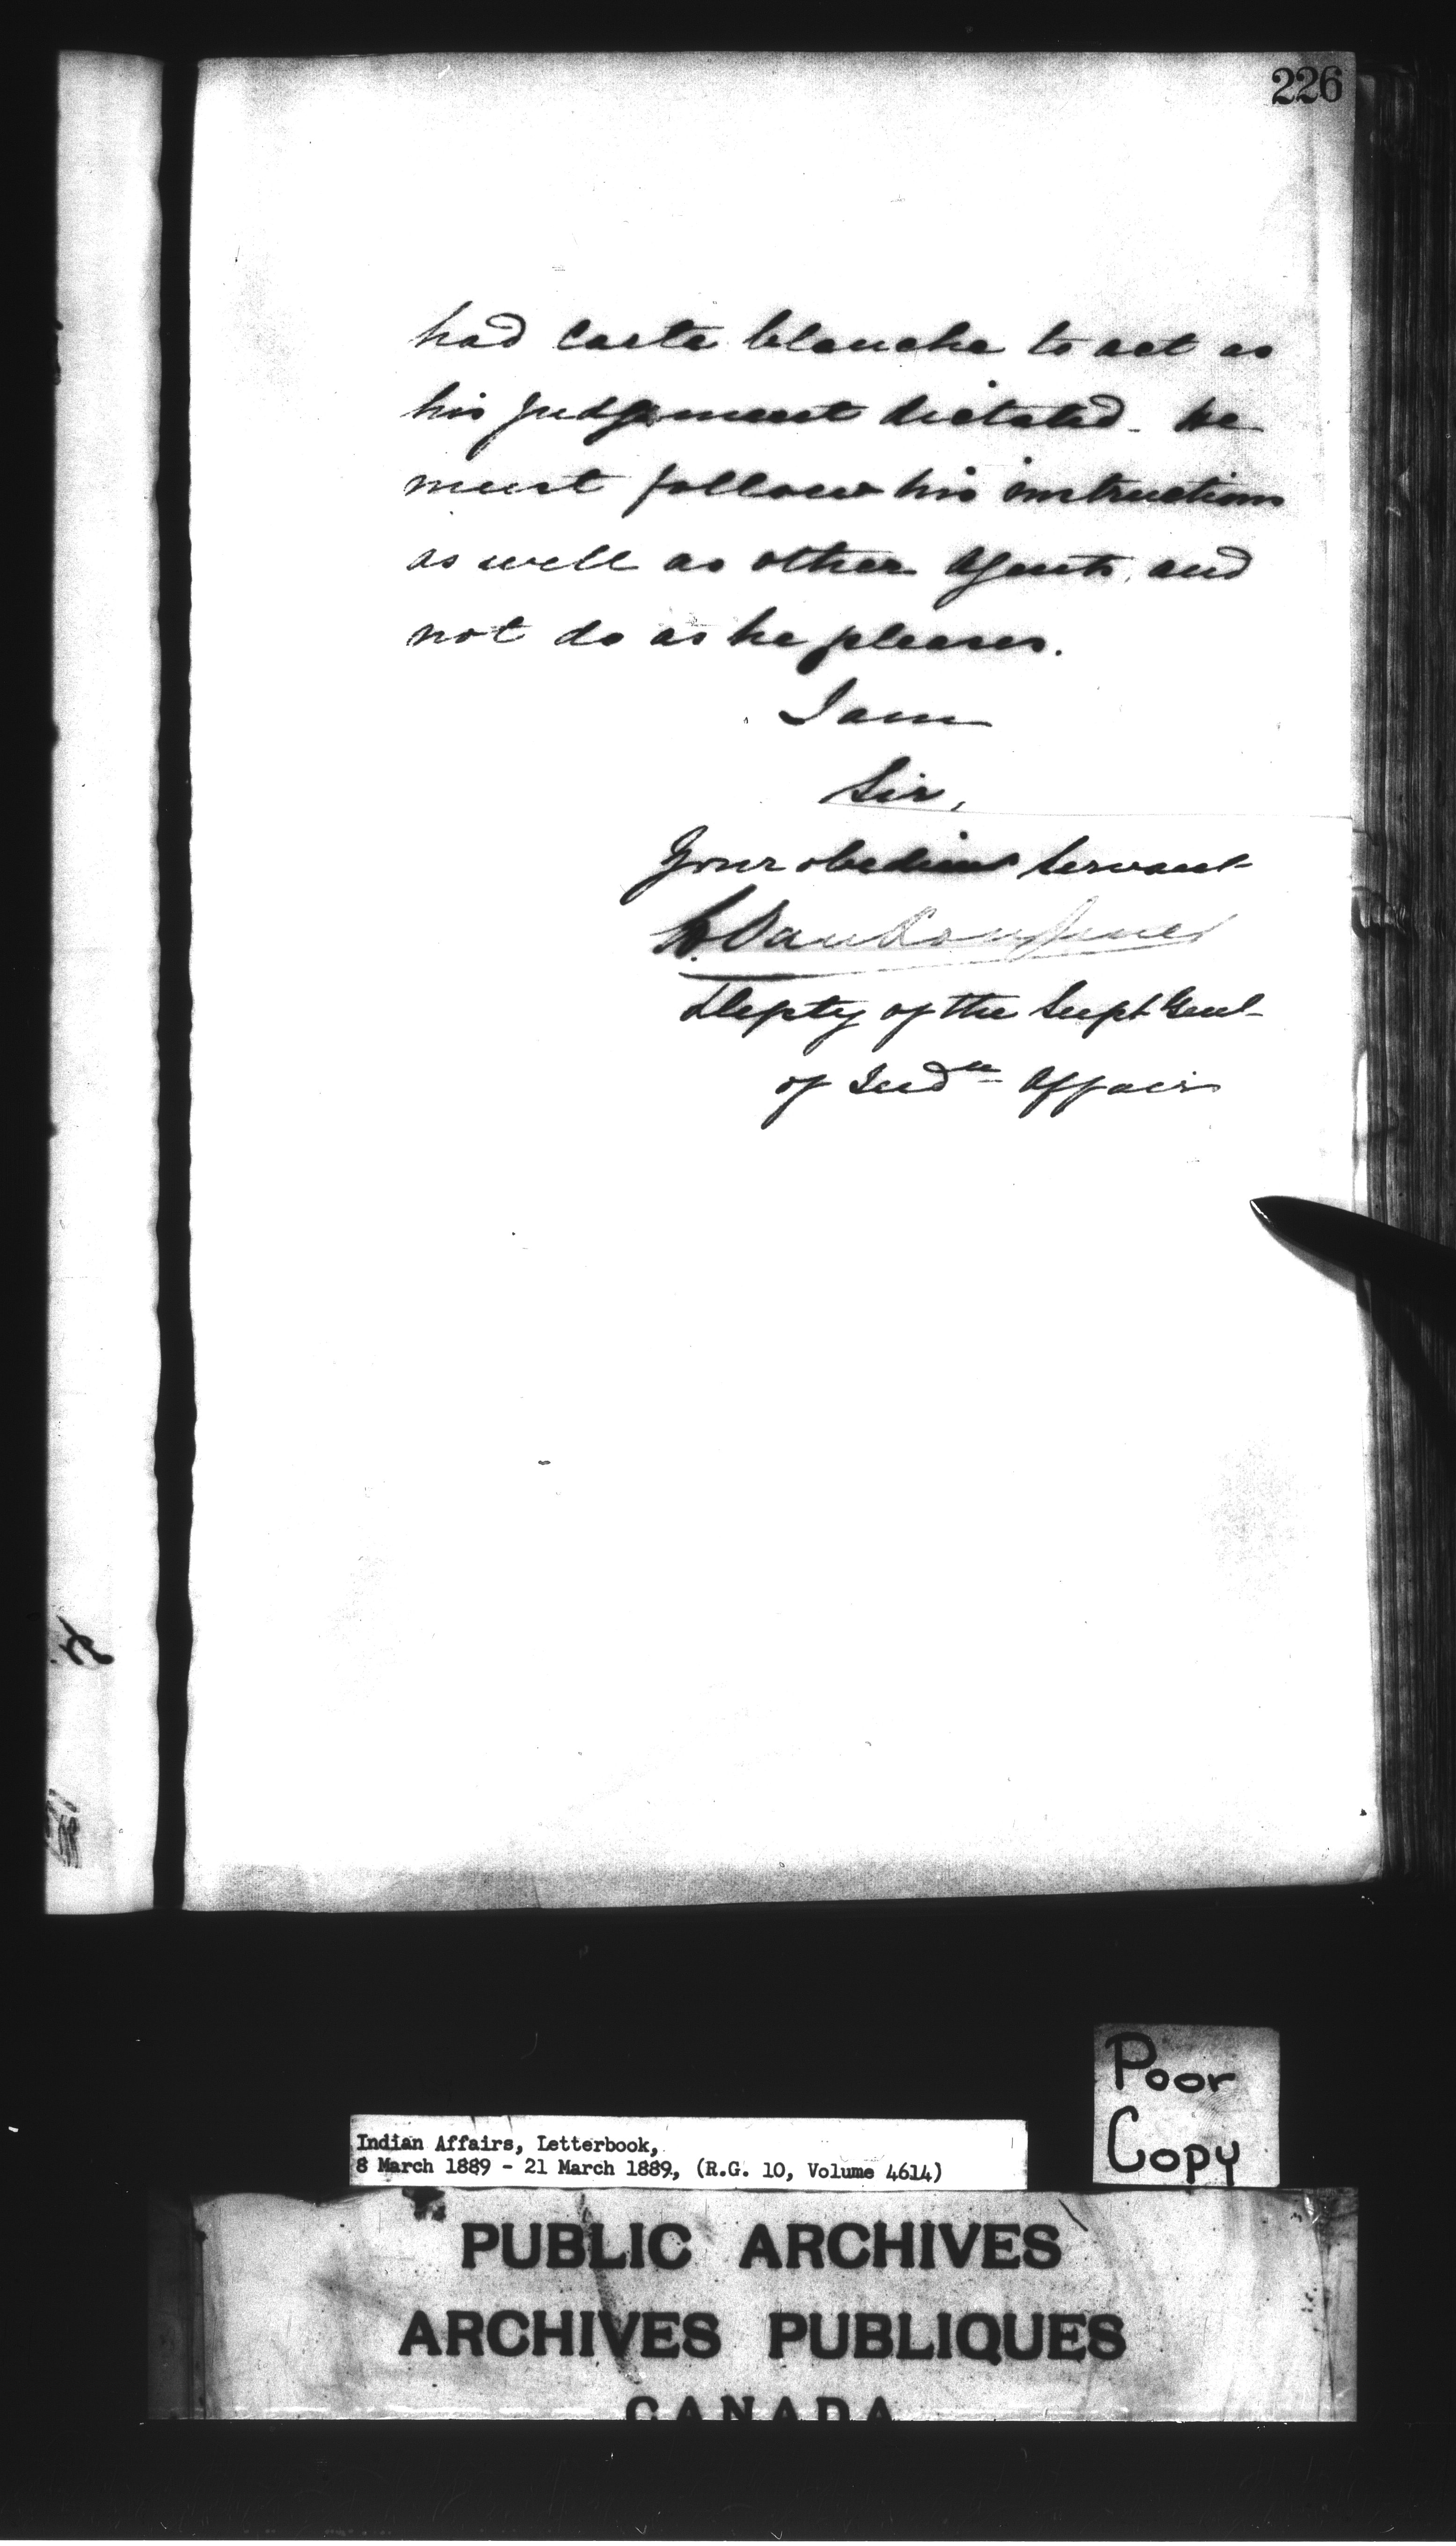 226
had carte blanche to act as
his judgement dictated. He
must follow his instructions
as well as other Agents, and
not do as he pleases.
I am
Sir,
Your obedient Servant
L. Vankoughnet
Depty of the Supt Genl
of Indn Affairs
Poor
Copy
Indian Affairs, Letterbook,
8 March 1889 - 21 March 1889, (R.G. 10, Volume 4614)
PUBLIC ARCHIVES
ARCHIVES PUBLIQUES
CANADA